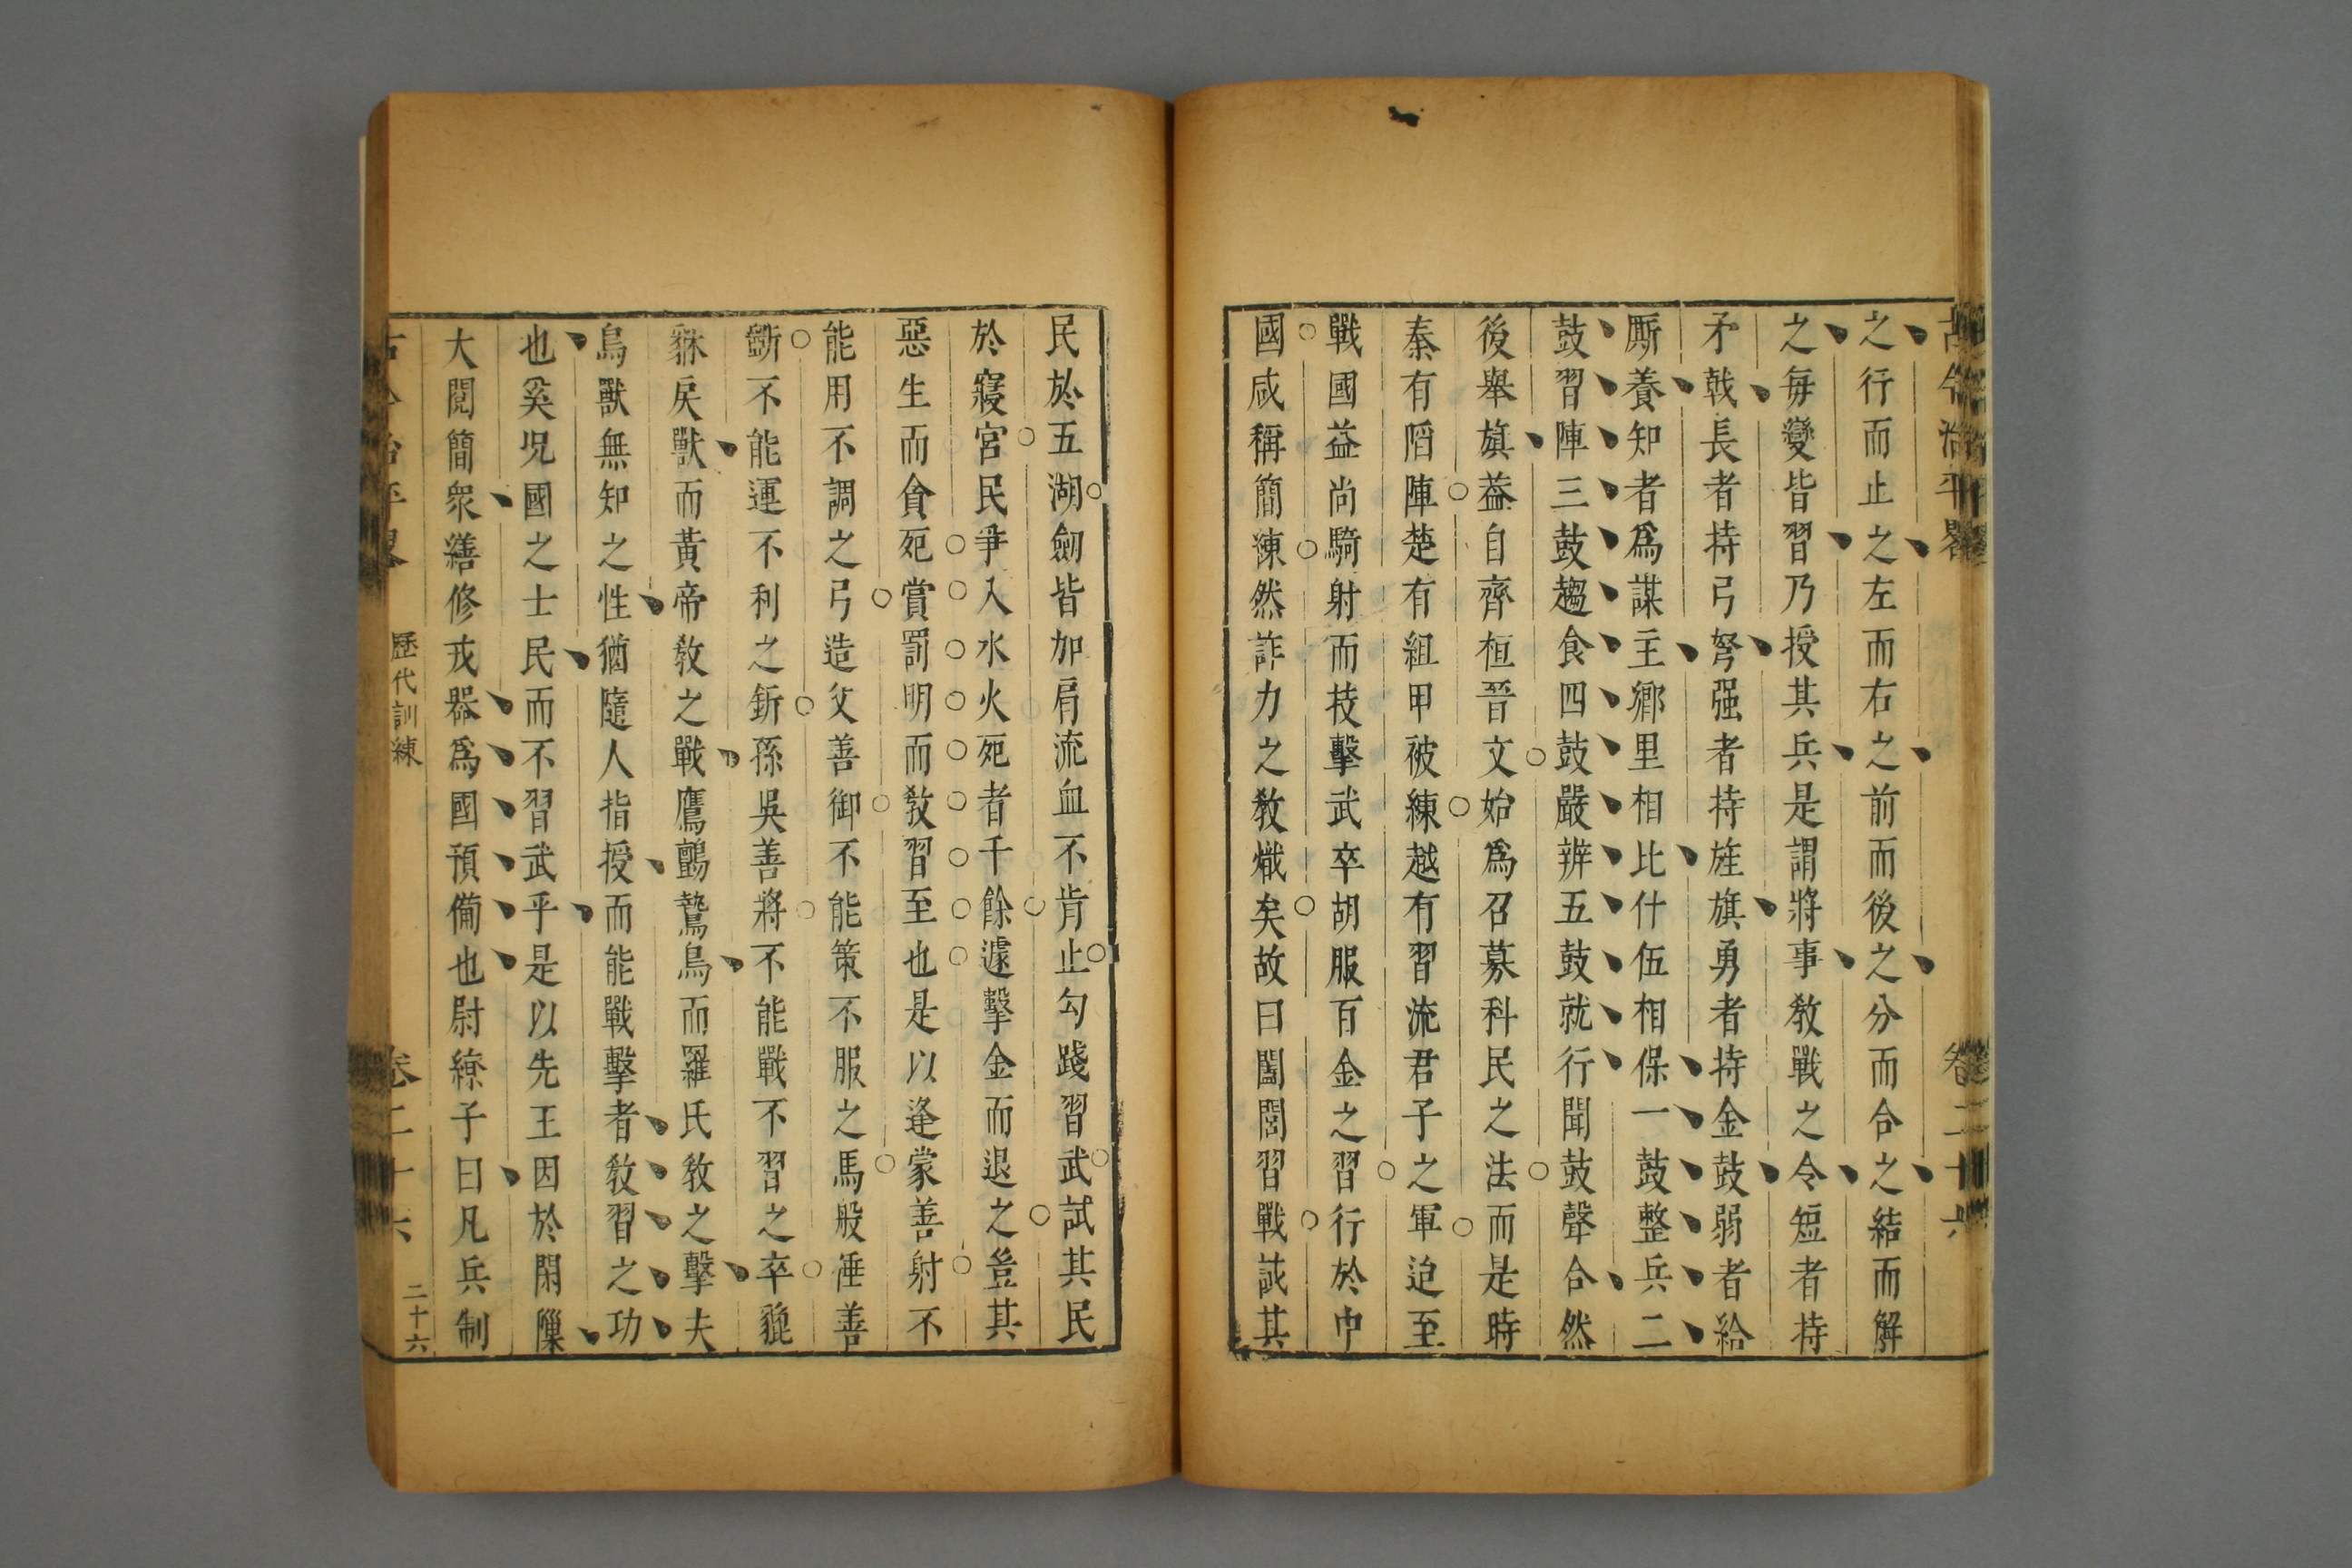 古今治平畧 卷二十六
之行而止之左而右之前而後之分而合之結而解
之每變皆習乃授其兵是謂將事教戰之令短者持
矛戟長者持弓弩强者持旌旗勇者持金鼓弱者給
厮養知者爲謀主鄉里相比什伍相保一鼓整兵二
鼓習陣三鼓趨食四鼓嚴辨五鼓就行聞鼓聲合然
後舉旗益自齊桓晉文始爲召募科民之法而是時
秦有陷陣楚有組甲被練越有習流君子之軍迨至
戰國益尚騎射而技擊武卒胡服百金之習行於中
國咸稱簡練然詐力之教熾矣故曰闔閭習戰試其
民於五湖劒皆加肩流血不肯止勾踐習武試其民
於寢宮民爭入水火死者千餘遽擊金而退之豈其
惡生而貪死賞罰明而教習至也是以逢蒙善射不
能用不調之弓造父善御不能策不服之馬般倕善
斲不能運不利之斲孫吳善將不能戰不習之卒貔
貅戾獸而黃帝教之戰鷹鸇鷙鳥而羅氏教之擊夫
鳥獸無知之性猶隨人指授而能戰擊者教習之功
也奚况國之士民而不習武乎是以先王因於閑隟
大閱簡衆繕修戎器爲國預備也尉繚子曰凡兵制
古今治平畧 歷代訓練 卷二十六 二十六